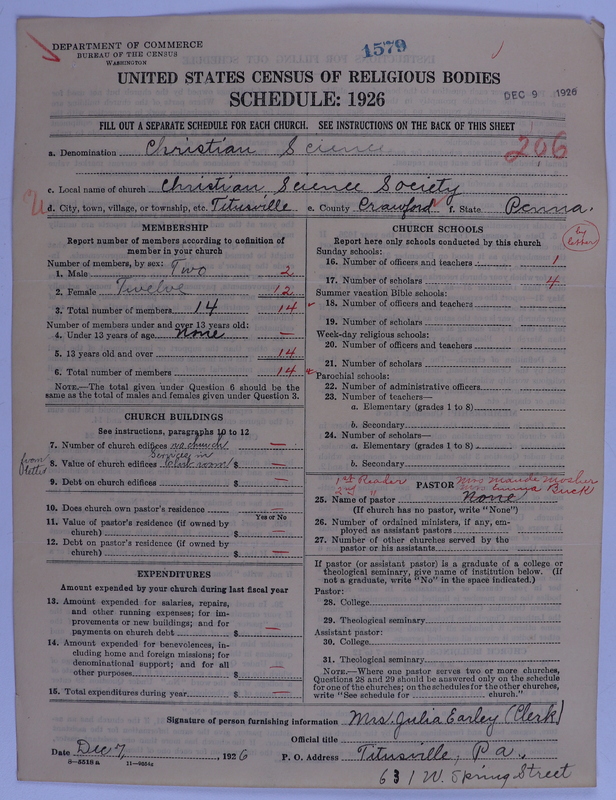 DEPARTMENT OF COMMERCE
BUREAU OF THE CENSUS
WASHINGTON
1579
UNITED STATES CENSUS OF RELIGIOUS BODIES
SCHEDULE: 1926
DEC 9 1926
FILL OUT A SEPARATE SCHEDULE FOR EACH CHURCH. SEE INSTRUCTIONS ON THE BACK OF THIS SHEET
a. Denomination Christian Science 206
c. Local name of church Christian Science Society
d. City, town, village, or township, etc. Titusville e. County Crawford f. State Penna.
MEMBERSHIP
Report number of members according to definition of
member in your church
Number of members, by sex:
1. Male Two 2
2. Female Twelve 12
3. Total number of members 14 14
Number of members under and over 13 years old:
4. Under 13 years of age None —
5. 13 years old and over 14
6. Total number of members 14
NOTE.—The total given under Question 6 should be the
same as the total of males and females given under Question 3.
CHURCH BUILDINGS
See instructions, paragraphs 10 to 12
7. Number of church edifices no church —
Services in
from letter
8. Value of church edifices Club room $ —
9. Debt on church edifices $ —
10. Does church own pastor's residence
Yes or No
11. Value of pastor's residence (if owned by
church) $ —
12. Debt on pastor's residence (if owned by
church) $ —
EXPENDITURES
Amount expended by your church during last fiscal year
13. Amount expended for salaries, repairs,
and other running expenses; for im-
provements or new buildings; and for
payments on church debt $ —
14. Amount expended for benevolences, in-
cluding home and foreign missions; for
denominational support; and for all
other purposes $ —
15. Total expenditures during year $ —
CHURCH SCHOOLS
by letter
Report here only schools conducted by this church
Sunday schools:
16. Number of officers and teachers 1
17. Number of scholars 4
Summer vacation Bible schools:
18. Number of officers and teachers
19. Number of scholars
Week-day religious schools:
20. Number of officers and teachers
21. Number of scholars
Parochial schools:
22. Number of administrative officers
23. Number of teachers—
a. Elementary (grades 1 to 8)
b. Secondary
24. Number of scholars—
a. Elementary (grades 1 to 8)
b. Secondary
1st Reader Mrs Maude Mosher
PASTOR
2nd " Mrs Emma Buck
25. Name of pastor None
(If church has no pastor, write "None")
26. Number of ordained ministers, if any, em-
ployed as assistant pastors
27. Number of other churches served by the
pastor or his assistants
If pastor (or assistant pastor) is a graduate of a college or
theological seminary, give name of institution below. (If
not a graduate, write "No" in the space indicated.)
Pastor:
28. College
29. Theological seminary
Assistant pastor:
30. College
31. Theological seminary
NOTE.—Where one pastor serves two or more churches,
Questions 28 and 29 should be answered only on the schedule
for one of the churches; on the schedules for the other churches,
write "See schedule for church."
Signature of person furnishing information Mrs. Julia Earley (Clerk)
Official title
Date Dec 7, 1926 P. O. Address Titusville, Pa.
8-5518a 11-9554c
631 W. Spring Street